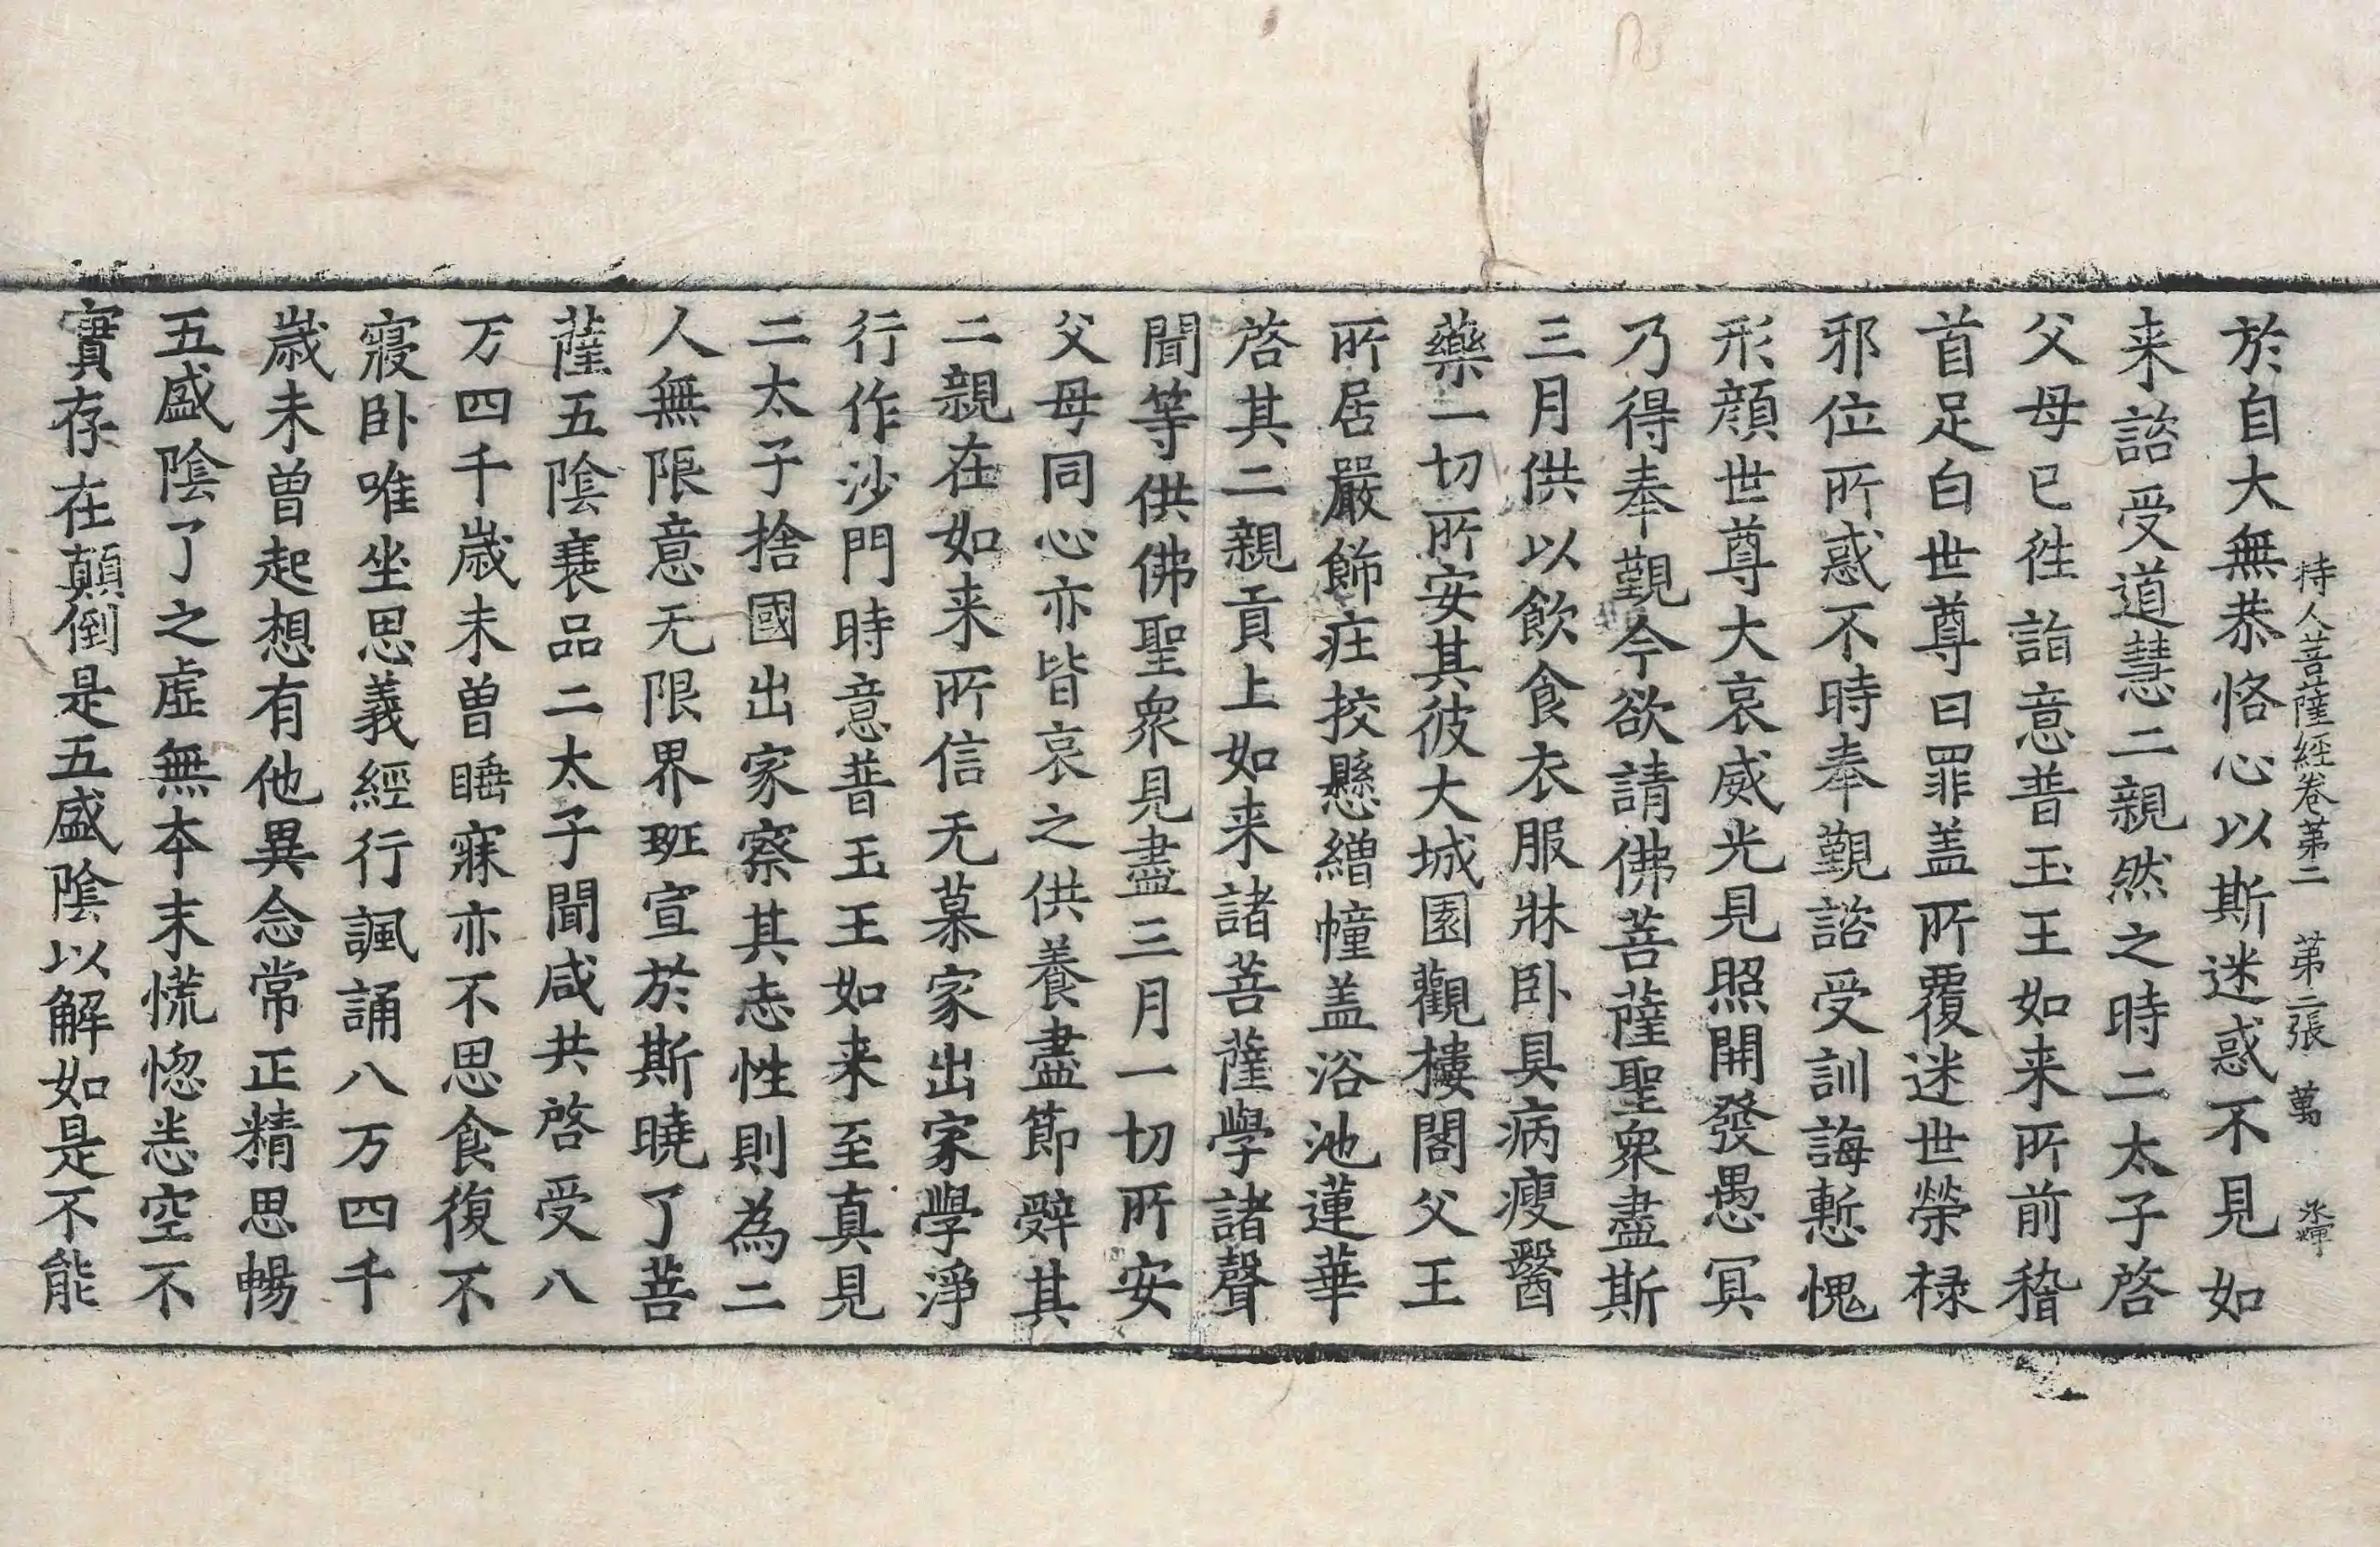 持人菩薩經卷第二 第二張 萬
於自大無恭恪心以斯迷惑不見如
来諮受道慧二親然之時二太子啓
父母已徃詣意普玉王如来所前稽
首足白世尊曰罪盖所覆迷世榮禄
邪位所惑不時奉覲諮受訓誨慙愧
形顔世尊大哀威光見照開發愚冥
乃得奉覲今欲請佛菩薩聖衆盡斯
三月供以飲食衣服牀卧具病瘦醫
藥一切所安其彼大城園觀樓閣父王
所居嚴飾莊挍懸繒幢盖浴池蓮華
啓其二親貢上如来諸菩薩學諸聲
聞等供佛聖衆見盡三月一切所安
父母同心亦皆哀之供養盡節辝其
二親在如来所信无慕家出家學淨
行作沙門時意普玉王如来至真見
二太子捨國出家察其志性則為二
人無限意无限界班宣於斯曉了菩
薩五陰衰品二太子聞咸共啓受八
万四千歲未曾睡寐亦不思食復不
寢卧唯坐思義經行諷誦八万四千
歲未曾起想有他異念常正精思暢
五盛陰了之虛無本末慌惚恙空不
實存在顛倒是五盛陰以解如是不能